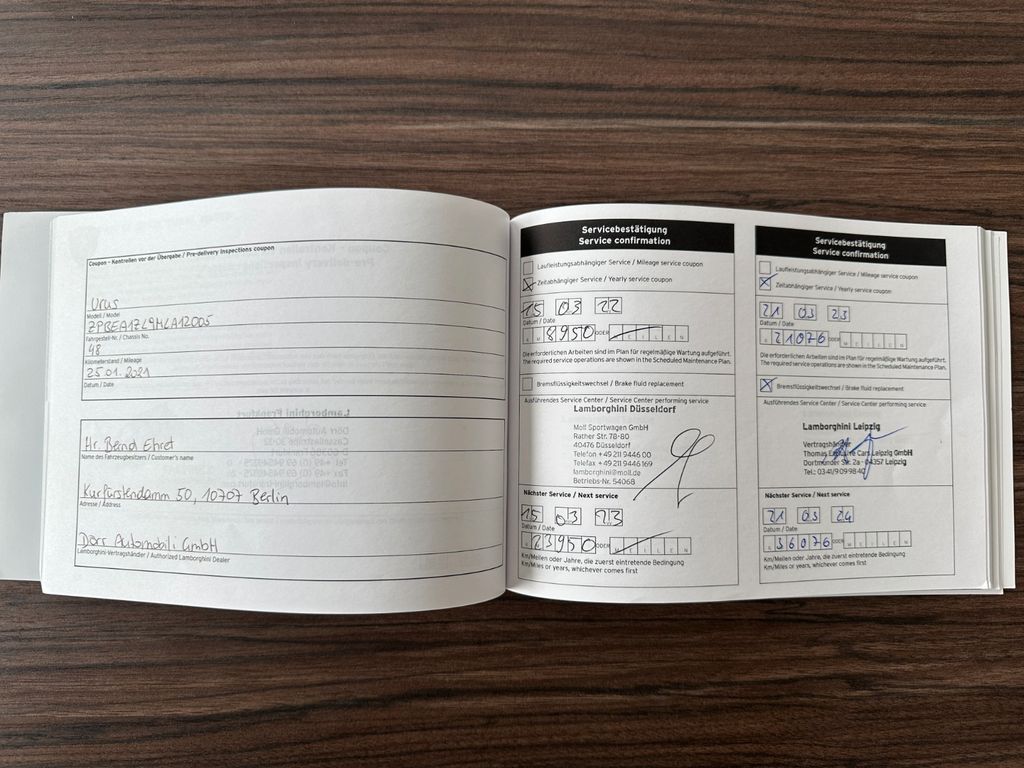 Coupon - Kontrollen vor der Übergabe / Pre-delivery Inspections coupon
Urus
Modell / Model
ZPBEA1ZL9MLA12005
Fahrgestell-Nr. / Chassis No.
48
Kilometerstand / Mileage
25.01.2021
Datum / Date
Hr. Bernd Ehret
Name des Fahrzeugbesitzers / Customer's name
Kurfürstendamm 50, 10707 Berlin
Adresse / Address
Dörr Automobili GmbH
Lamborghini-Vertragshändler / Authorized Lamborghini Dealer
Servicebestätigung
Service confirmation
Laufleistungsabhängiger Service / Mileage service coupon
Zeitabhängiger Service / Yearly service coupon
15 03 22
Datum / Date
8950 ODER MEILEN
Die erforderlichen Arbeiten sind im Plan für regelmäßige Wartung aufgeführt.
The required service operations are shown in the Scheduled Maintenance Plan.
Bremsflüssigkeitswechsel / Brake fluid replacement
Ausführendes Service Center / Service Center performing service
Lamborghini Düsseldorf
Moll Sportwagen GmbH
Rather Str. 78-80
40476 Düsseldorf
Telefon +49 211 9446 00
Telefax +49 211 9446 169
lamborghini@moll.de
Betriebs-Nr. 54068
Nächster Service / Next service
15 03 23
Datum / Date
23950 ODER MEILEN
Km/Meilen oder Jahre, die zuerst eintretende Bedingung
Km/Miles or years, whichever comes first
Servicebestätigung
Service confirmation
Laufleistungsabhängiger Service / Mileage service coupon
Zeitabhängiger Service / Yearly service coupon
21 03 23
Datum / Date
21076 ODER MEILEN
Die erforderlichen Arbeiten sind im Plan für regelmäßige Wartung aufgeführt.
The required service operations are shown in the Scheduled Maintenance Plan.
Bremsflüssigkeitswechsel / Brake fluid replacement
Ausführendes Service Center / Service Center performing service
Lamborghini Leipzig
Vertragshändler
Thomas Exclusive Cars Leipzig GmbH
Dortmunder Str. 2a · 04357 Leipzig
Tel.: 03 41/9 09 98 40
Nächster Service / Next service
21 03 24
Datum / Date
36076 ODER MEILEN
Km/Meilen oder Jahre, die zuerst eintretende Bedingung
Km/Miles or years, whichever comes first